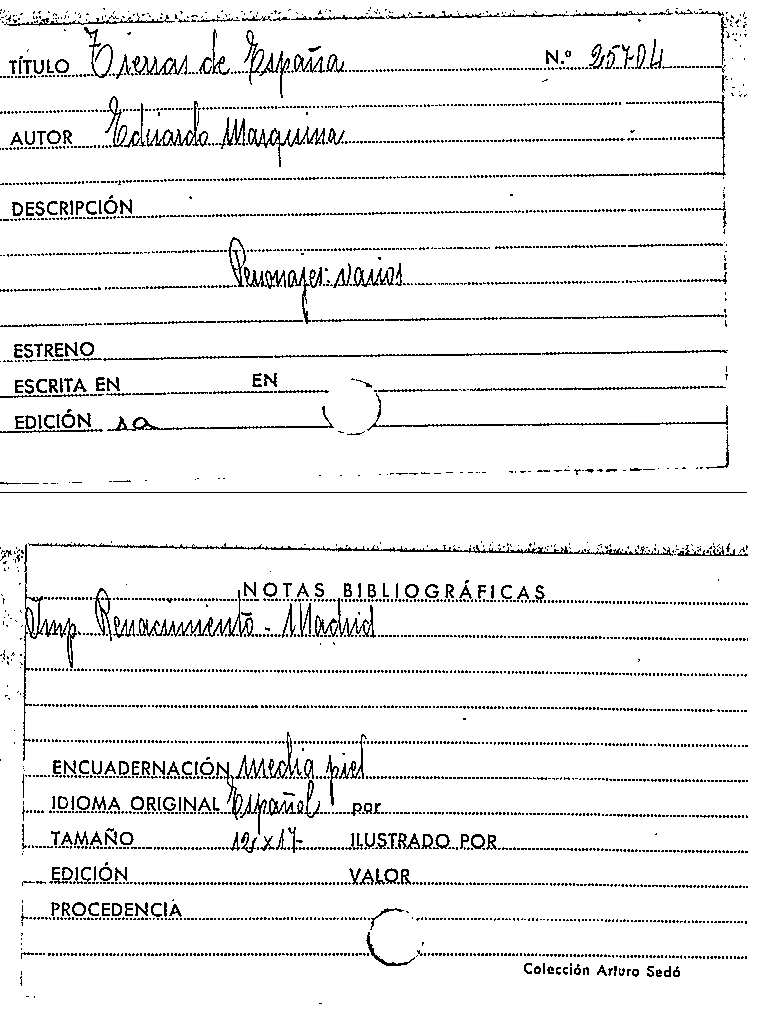 TÍTULO Tierras de España N.º 25704
AUTOR Eduardo Marquina
DESCRIPCIÓN
Personajes: varios
ESTRENO
ESCRITA EN EN
EDICIÓN sa
NOTAS BIBLIOGRÁFICAS
Imp Renacimiento - Madrid
ENCUADERNACIÓN media piel
IDIOMA ORIGINAL Español por
TAMAÑO 12 x 17 ILUSTRADO POR
EDICIÓN VALOR
PROCEDENCIA
Colección Arturo Sedó